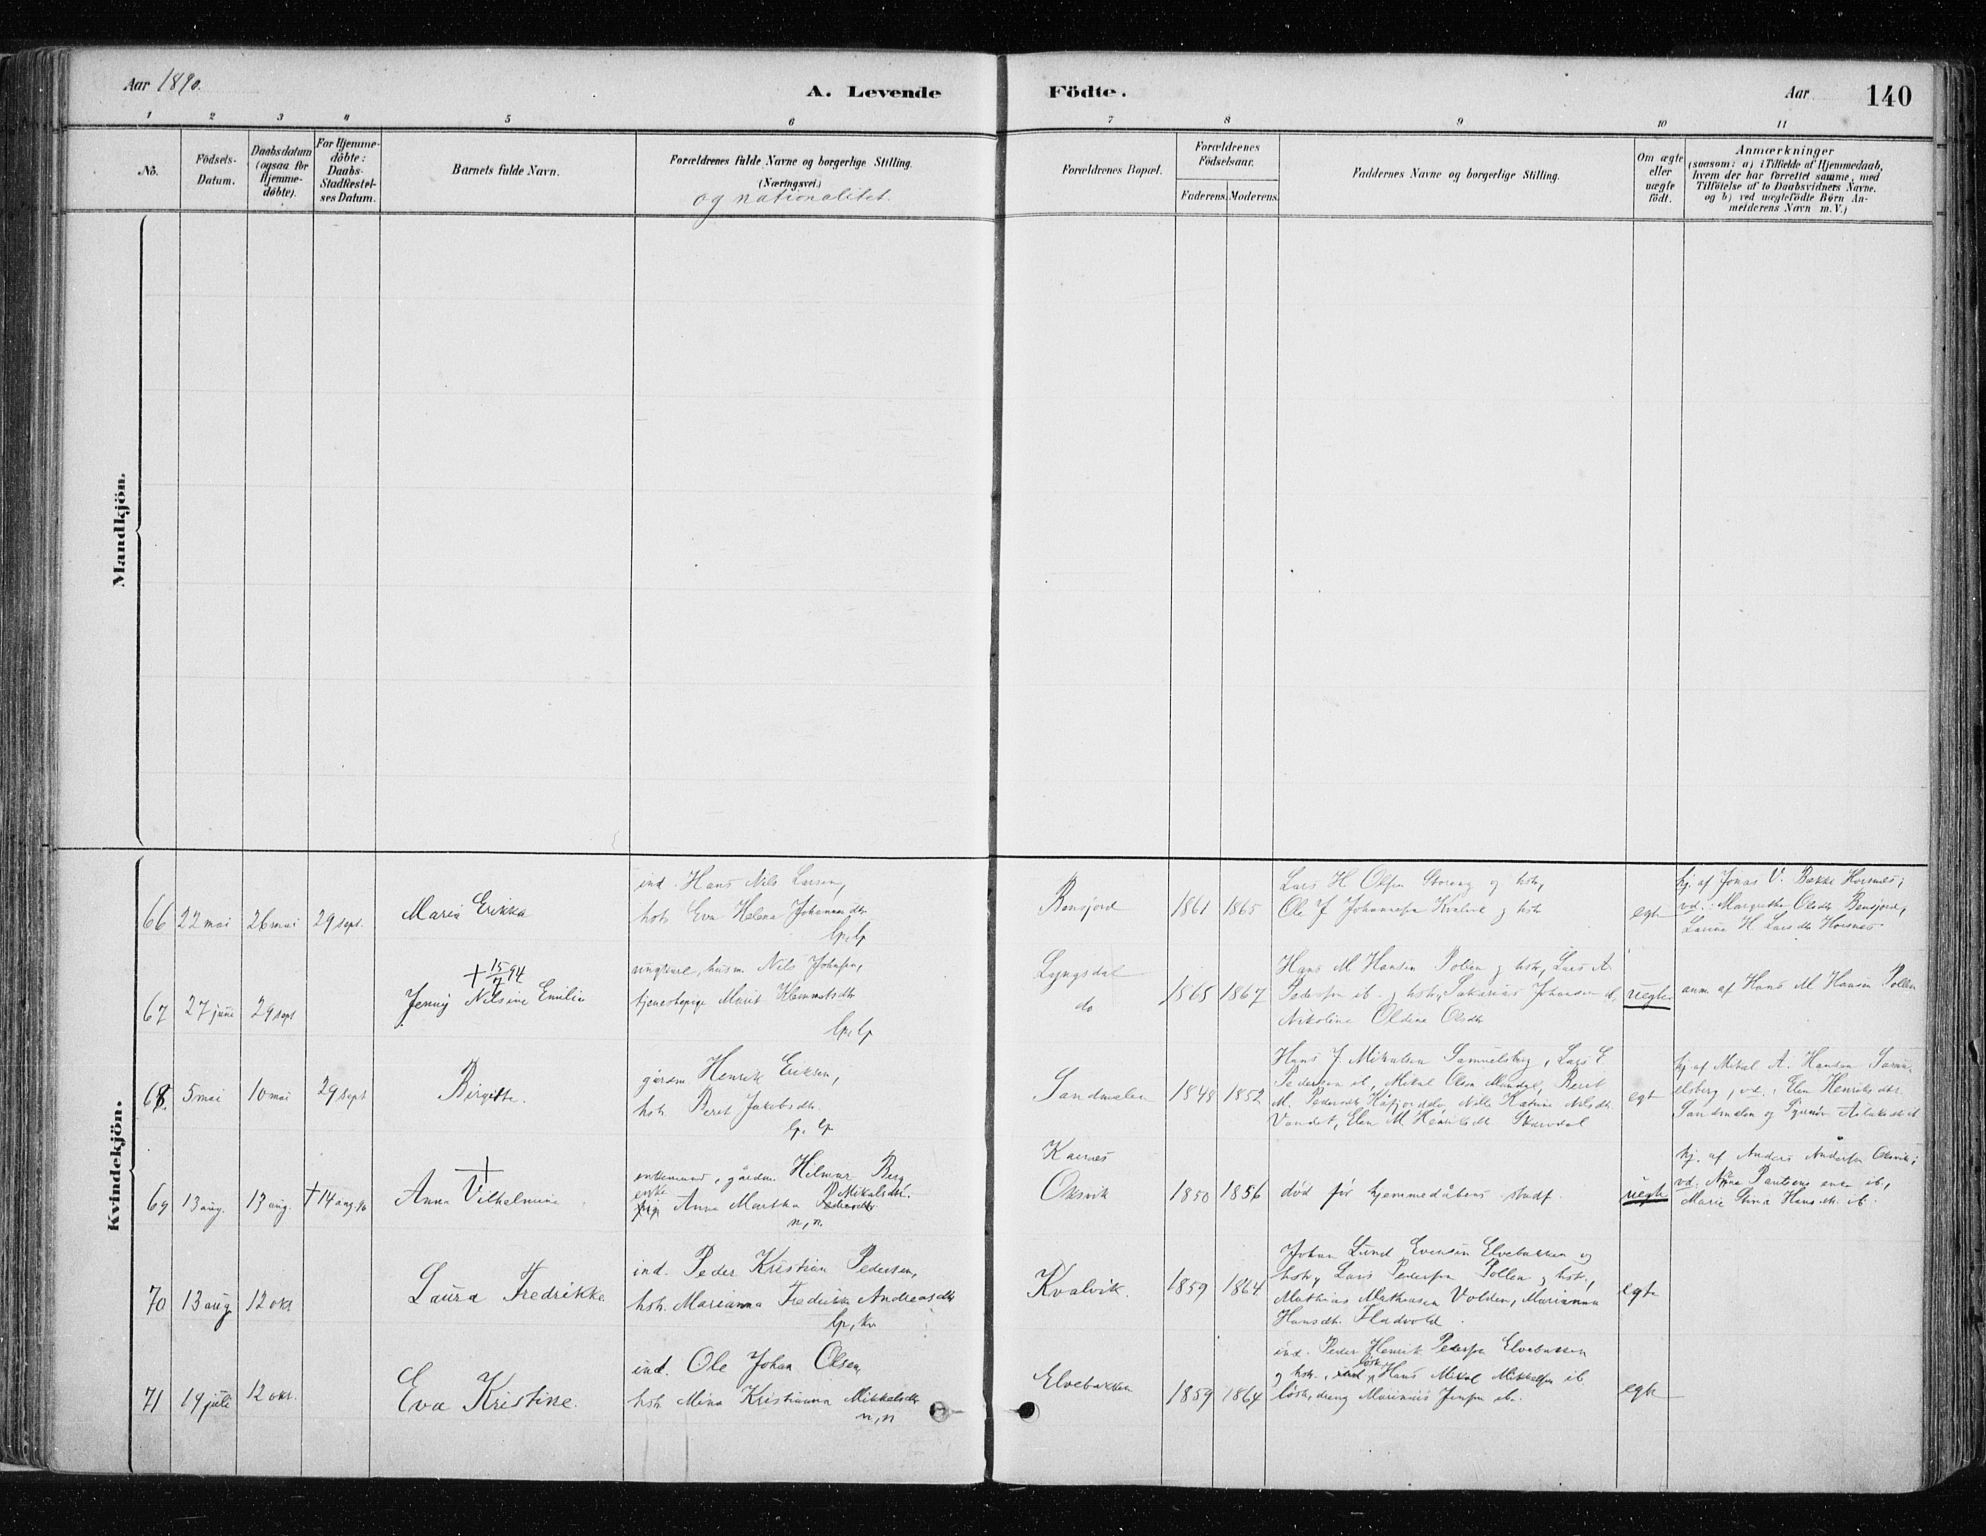 Aar 1890.
A. Levende
Födte.
Aar
140
1 2 3 4 5 6 7 8 9 10 11
No.
Födsels-
Datum.
Daabsdatum
(ogsaa for
Hjemme-
döbte).
For Hjemme-
döbte:
Daabs-
Stadfæstel-
ses Datum.
Barnets fulde Navn.
Forældrenes fulde Navne og borgerlige Stilling.
(Næringsvei.)
og nationalitet.
Forældrenes Bopæl.
Forældrenes
Födselsaar.
Faderens. Moderens.
Faddernes Navne og borgerlige Stilling.
Om ægte
eller
uægte
födt.
Anmærkninger
(saasom: a) i Tilfælde af Hjemmedaab,
hvem der har forrettet samme, med
Tilföielse af to Daabsvidners Navne.
og b) ved uægtefödte Børn An-
melderens Navn m.V.)
Mandkjön.
Kvindekjön.
66 22 mai 26 mai 29 sept.
Maria Erikka
ind. Hans Nils Larsen,
hstr Eva Helena Johannesdtr
lp, lp
Bensjord
1861 1865
Lars H Olsen Storeng og hstr,
Ole J Johannesen Kvalvik og hstr
egte
hj. af Jonas V. Bakke Horsnes;
vd.: Margrethe Olsdtr Bensjord,
Laura H Larsdtr Horsnes
67 27 juni 29 sept
+ 15/7 94
Jenny Nilsine Emilie
ungkarl, husm. Nils Johnsen,
tjenestepige Marit Klemmetsdtr
lp, lp
Lyngsdal
do
1865 1867
Hans M Hansen Pollen og hstr, Lars A.
Pedersen ib. og hstr, Sakarias Johansen ib,
Nikoline Oldine Olsdtr
uegte
anm. af Hans M Hansen Pollen
68. 5 mai 10 mai 29 sept
Birgitte.
gårdm Henrik Eriksen,
hstr Beret Jakobsdtr.
lp, lp
Sandmelen
1848 1852
Hans J. Mikalsen Samuelsberg, Lars E
Pedersen ib, Mikal Olsen Mandal, Beret
M. Pedersdtr Kåfjorddalen, Nille Katrine Nilsdtr
Vandet, Elen M Henriksdtr Skardal
egte
hj. af Mikal A. Hansen Samu-
elsberg, vd.: Elen Henriksdtr
Sandmelen og
69 13 aug. 13 aug. + 14 aug. 90
+
Anna Vilhelmine
enkemand, gårdm. Hilmar Berg
enke
Anna Martha Mikalsdtr.
n, n.
Kavnes
Oksvik
1850 1856
død før hjemmedåbens stadf.
uegte
hj. af Anders Andersen Oksvik;
vd. Anna Paulsens enke ib,
Marie Hansdtr. ib.
70 13 aug 12 okt.
Laura Fredrikke
ind. Peder Kristian Pedersen,
hstr. Marianna Fredrikke Andreasdtr
lp, kv
Kvalvik.
1859 1864
Johan Lund Evensen Elvebakken og
hstr, Lars Pedersen Pollen og hstr,
Mathias Mathiasen Volden, Marianna
Hansdtr.
egte
71 19 juli 12 okt.
Eva Kristine.
ind. Ole Johan Olsen
hstr Mina Kristianna Mikkelsdtr
n, n
Elvebakken
1859 1864
ind. Peder Henrik Pedersen Elvebakken
og hstr, løsk. Hans Mikal Mikkelsen ib
løsk, dreng Marinius Jensen ib.
egte